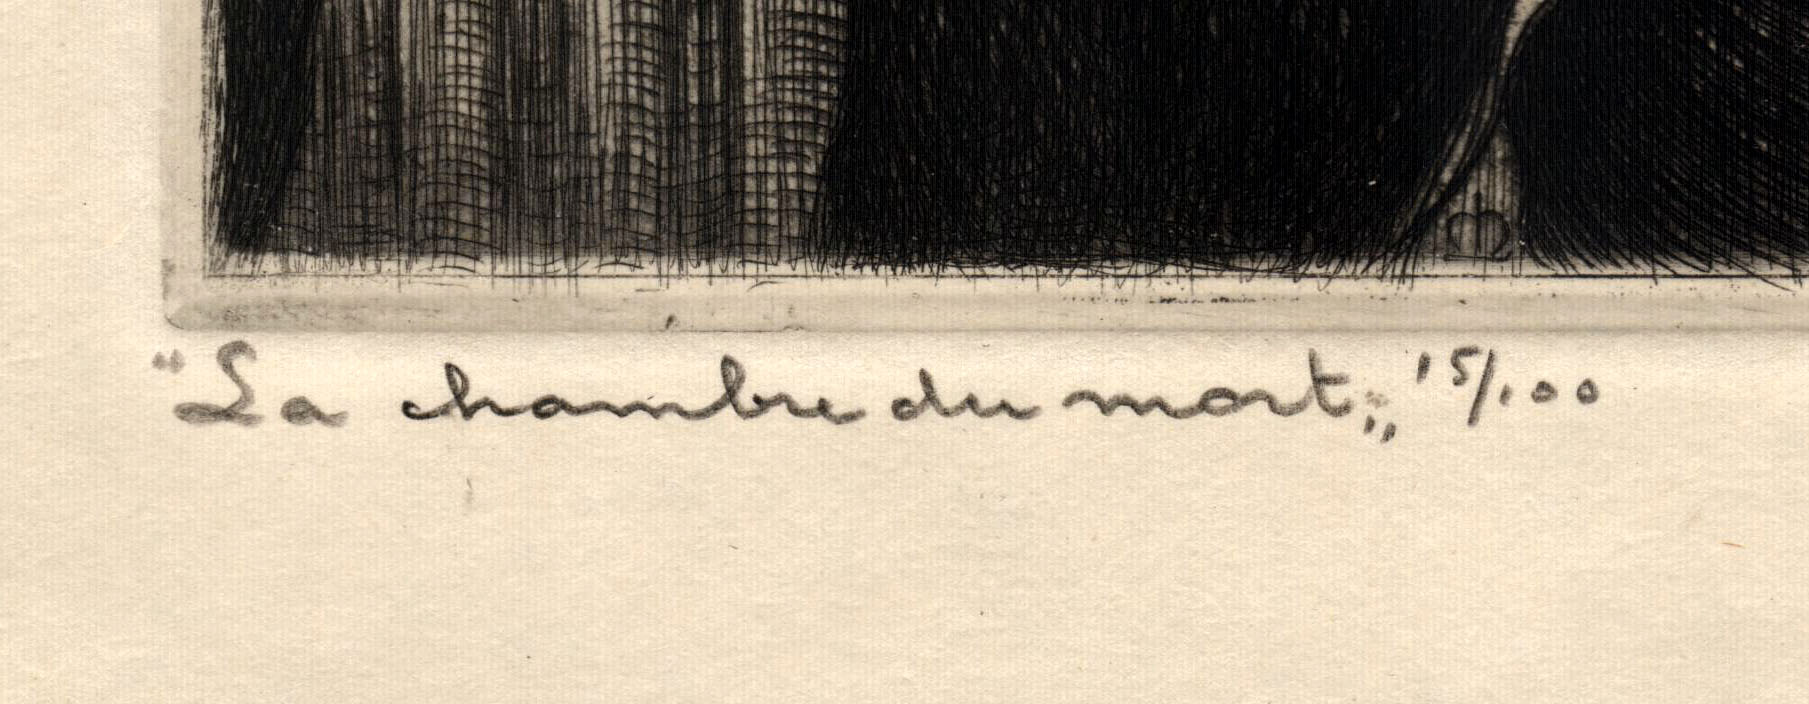 "La chambre du mort„ 15/100